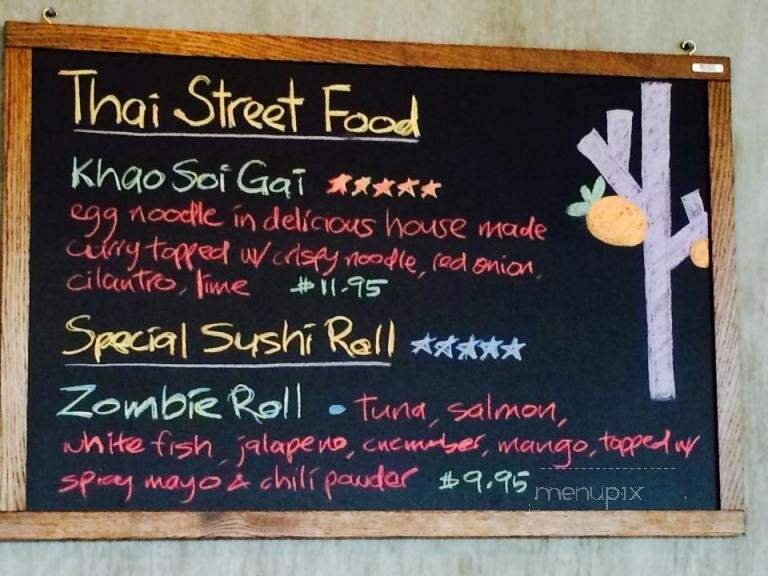 Thai Street Food
Khao Soi Gai ★★★★★
egg noodle in delicious house made
curry topped w/ crispy noodle, red onion,
cilantro, lime $11.95
Special Sushi Roll ★★★★★
Zombie Roll • Tuna, salmon,
white fish, jalapeno, cucumber, mango, topped w/
spicy mayo & chili powder $9.95
menupix